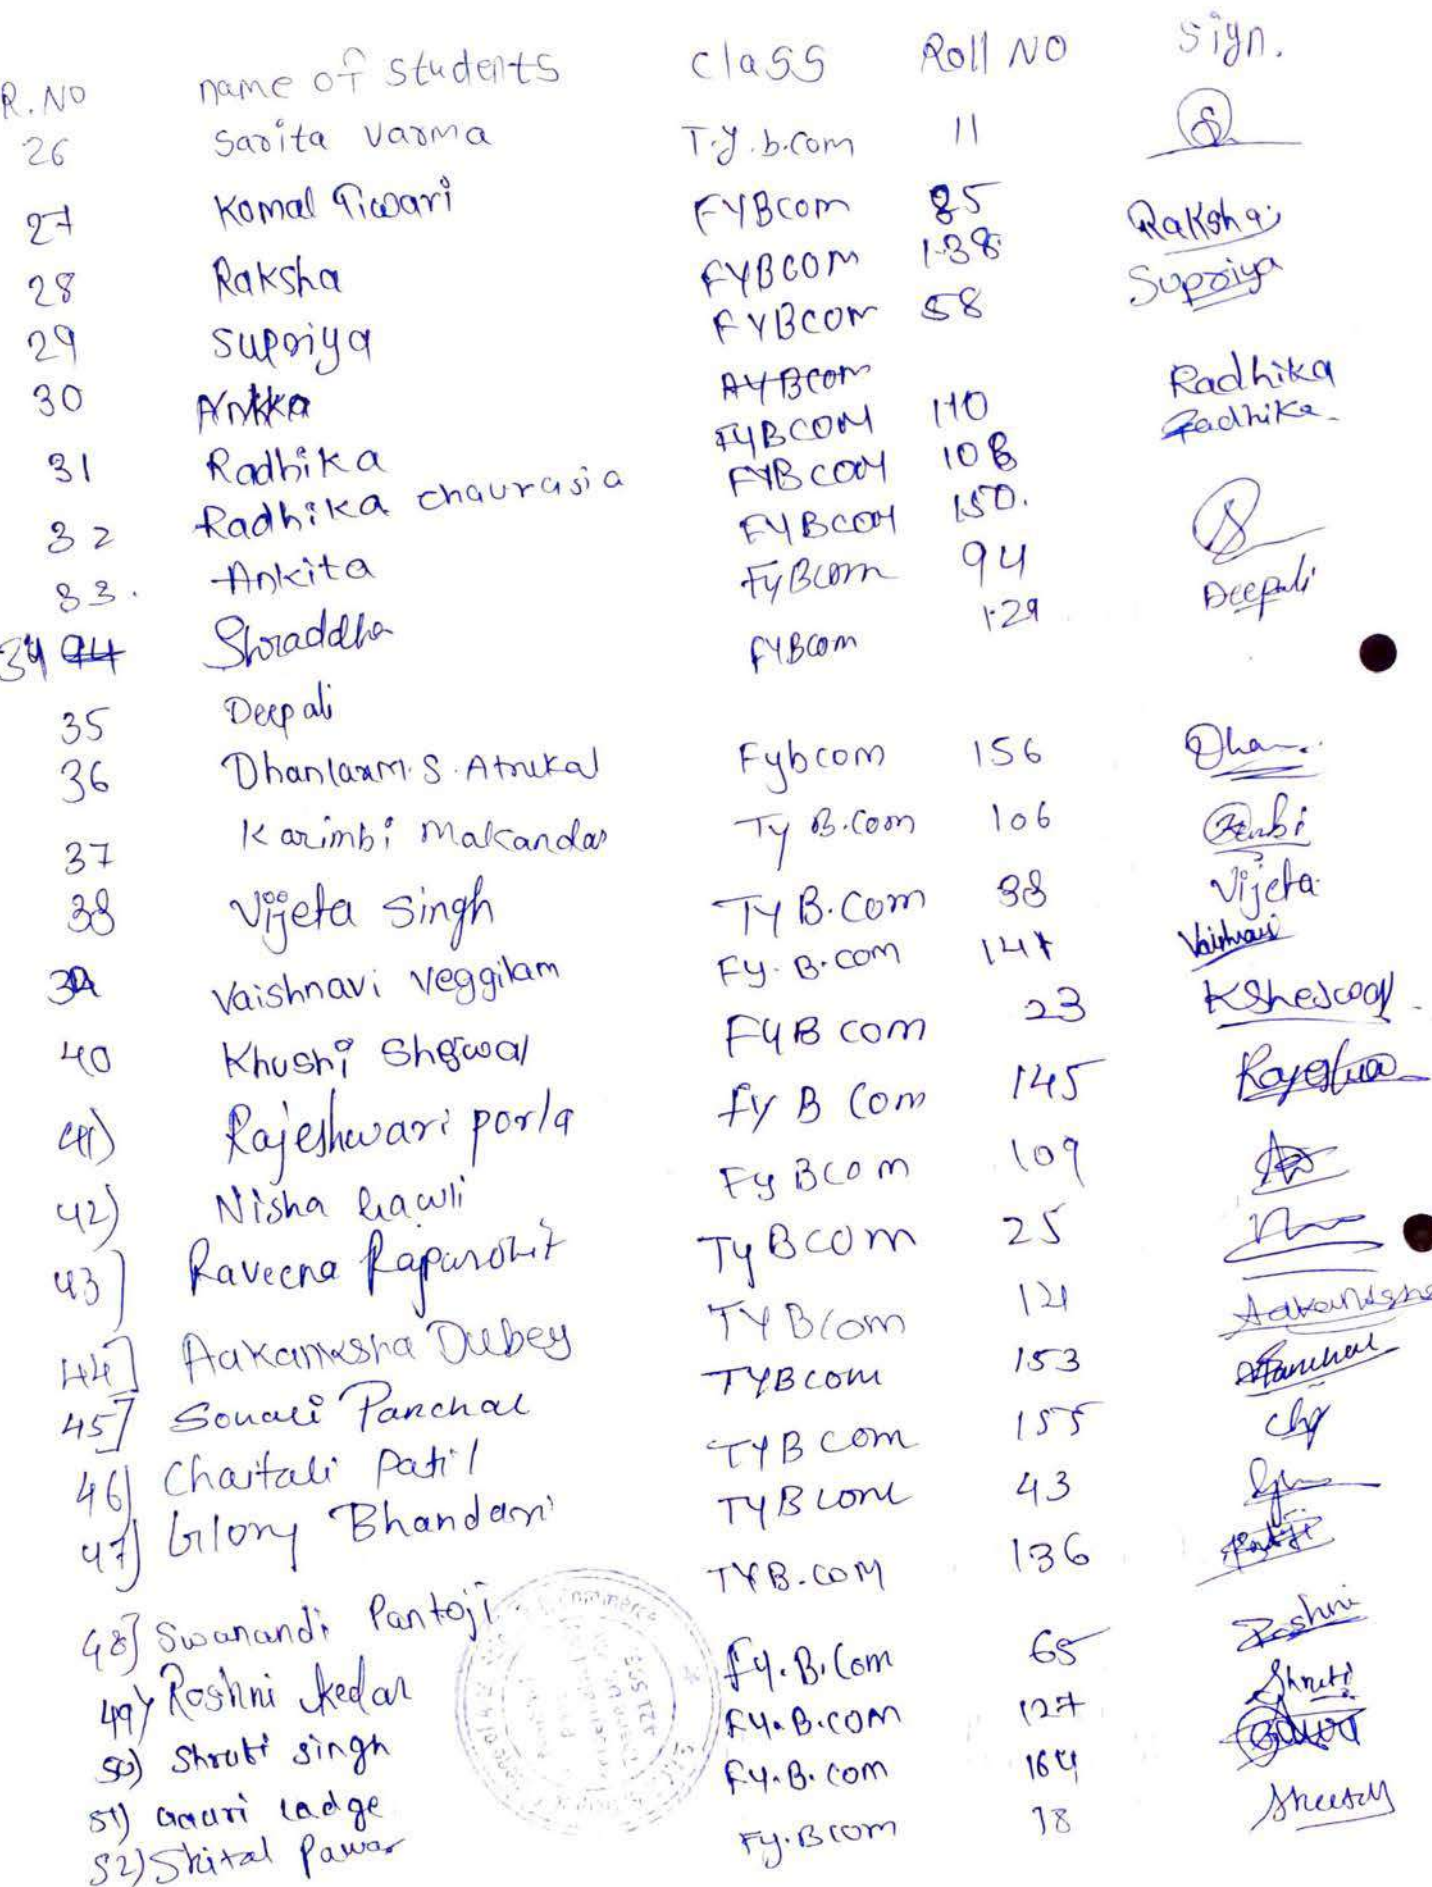 R.NO name of students class Roll NO sign.
26 Sarita varma T.y.b.com 11
27 Komal Tiwari FYBcom 85
28 Raksha FYBCOM 138 Raksha
29 Supriya FYBCOM 58 Supriya
30 AYBcom
31 Radhika FYBCOM 110 Radhika
32 Radhika chaurasia FYBCOM 108 Radhika
33. Ankita FYBCOM 150.
34 94 Shraddha FyBcom 94
35 Deepali FYBcom 129 Deepali
36 Dhanlaxmi.S.Atnukal Fybcom 156 Dhan
37 Karimbi Makandar Ty B.com 106
38 Vijeta Singh TY B.Com 38 Vijeta
39 Vaishnavi Veggilam Fy.B.com 141 Vaishnavi
40 Khushi Shejwal FYB com 23
41) Rajeshwari porla fy B Com 145
42) Nisha Gawli Fy BCom 109
43] Raveena Rajpurohit Ty BCOM 25
44] Aakanksha Dubey TYBCom 121 Aakanksha
45] Sonali Panchal TYBCOM 153 Panchal
46] Chaitali Patil TYBCOM 155
47] Glory Bhandari TYBCOM 43
48] Swanandi Pantoji TYB.COM 136
49) Roshni Kedar Fy.B.Com 65 Roshni
50) Shruti singh F.Y.B.COM 127 Shruti
51) Gauri Ladge F.Y.B.com 164
52) Shital Pawar Fy.Bcom 78